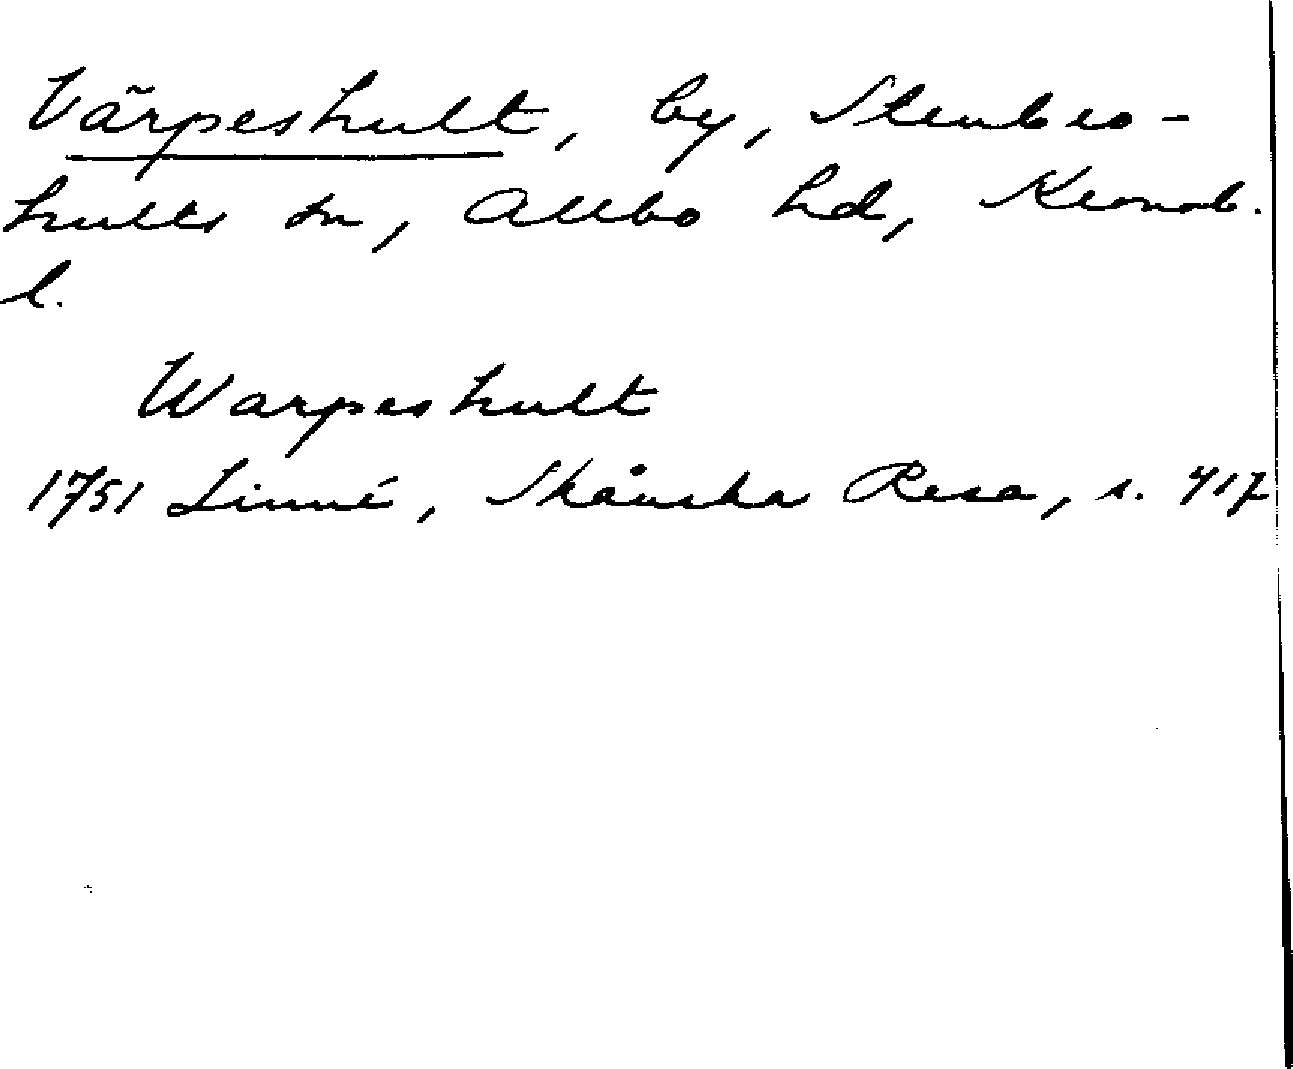 Värpeshult, by, Stenbro-
hults sn, Allbo hd, Kronob.
l.
Warpeshult
1751 Linné, Skånska Resa, s. 417